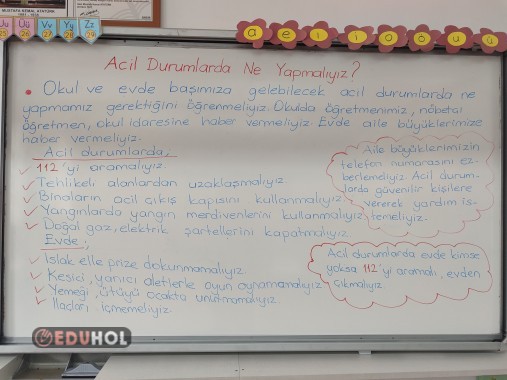 MUSTAFA KEMAL ATATÜRK
Uu Üü Vv Yy Zz
25 26 27 28 29
a e ı i o ö u ü
Acil Durumlarda Ne Yapmalıyız?
• Okul ve evde başımıza gelebilecek acil durumlarda ne
yapmamız gerektiğini öğrenmeliyiz. Okulda öğretmenimiz, nöbetçi
öğretmen, okul idaresine haber vermeliyiz. Evde aile büyüklerimize
haber vermeliyiz.
Acil durumlarda;
112'yi aramalıyız.
Tehlikeli alanlardan uzaklaşmalıyız.
Binaların acil çıkış kapısını kullanmalıyız.
Yangınlarda yangın merdivenlerini kullanmalıyız.
Doğal gaz, elektrik şartellerini kapatmalıyız.
Evde;
Islak elle prize dokunmamalıyız
Kesici, yanıcı aletlerle oyun oynamamalıyız
Yemeği, ütüyü ocakta unutmamalıyız.
İlaçları içmemeliyiz.
Aile büyüklerimizin
telefon numarasını ez-
berlemeliyiz. Acil durum-
larda güvenilir kişilere
vererek yardım is-
temeliyiz.
Acil durumlarda evde kimse
yoksa 112'yi aramalı, evden
çıkmalıyız
EDUHOL